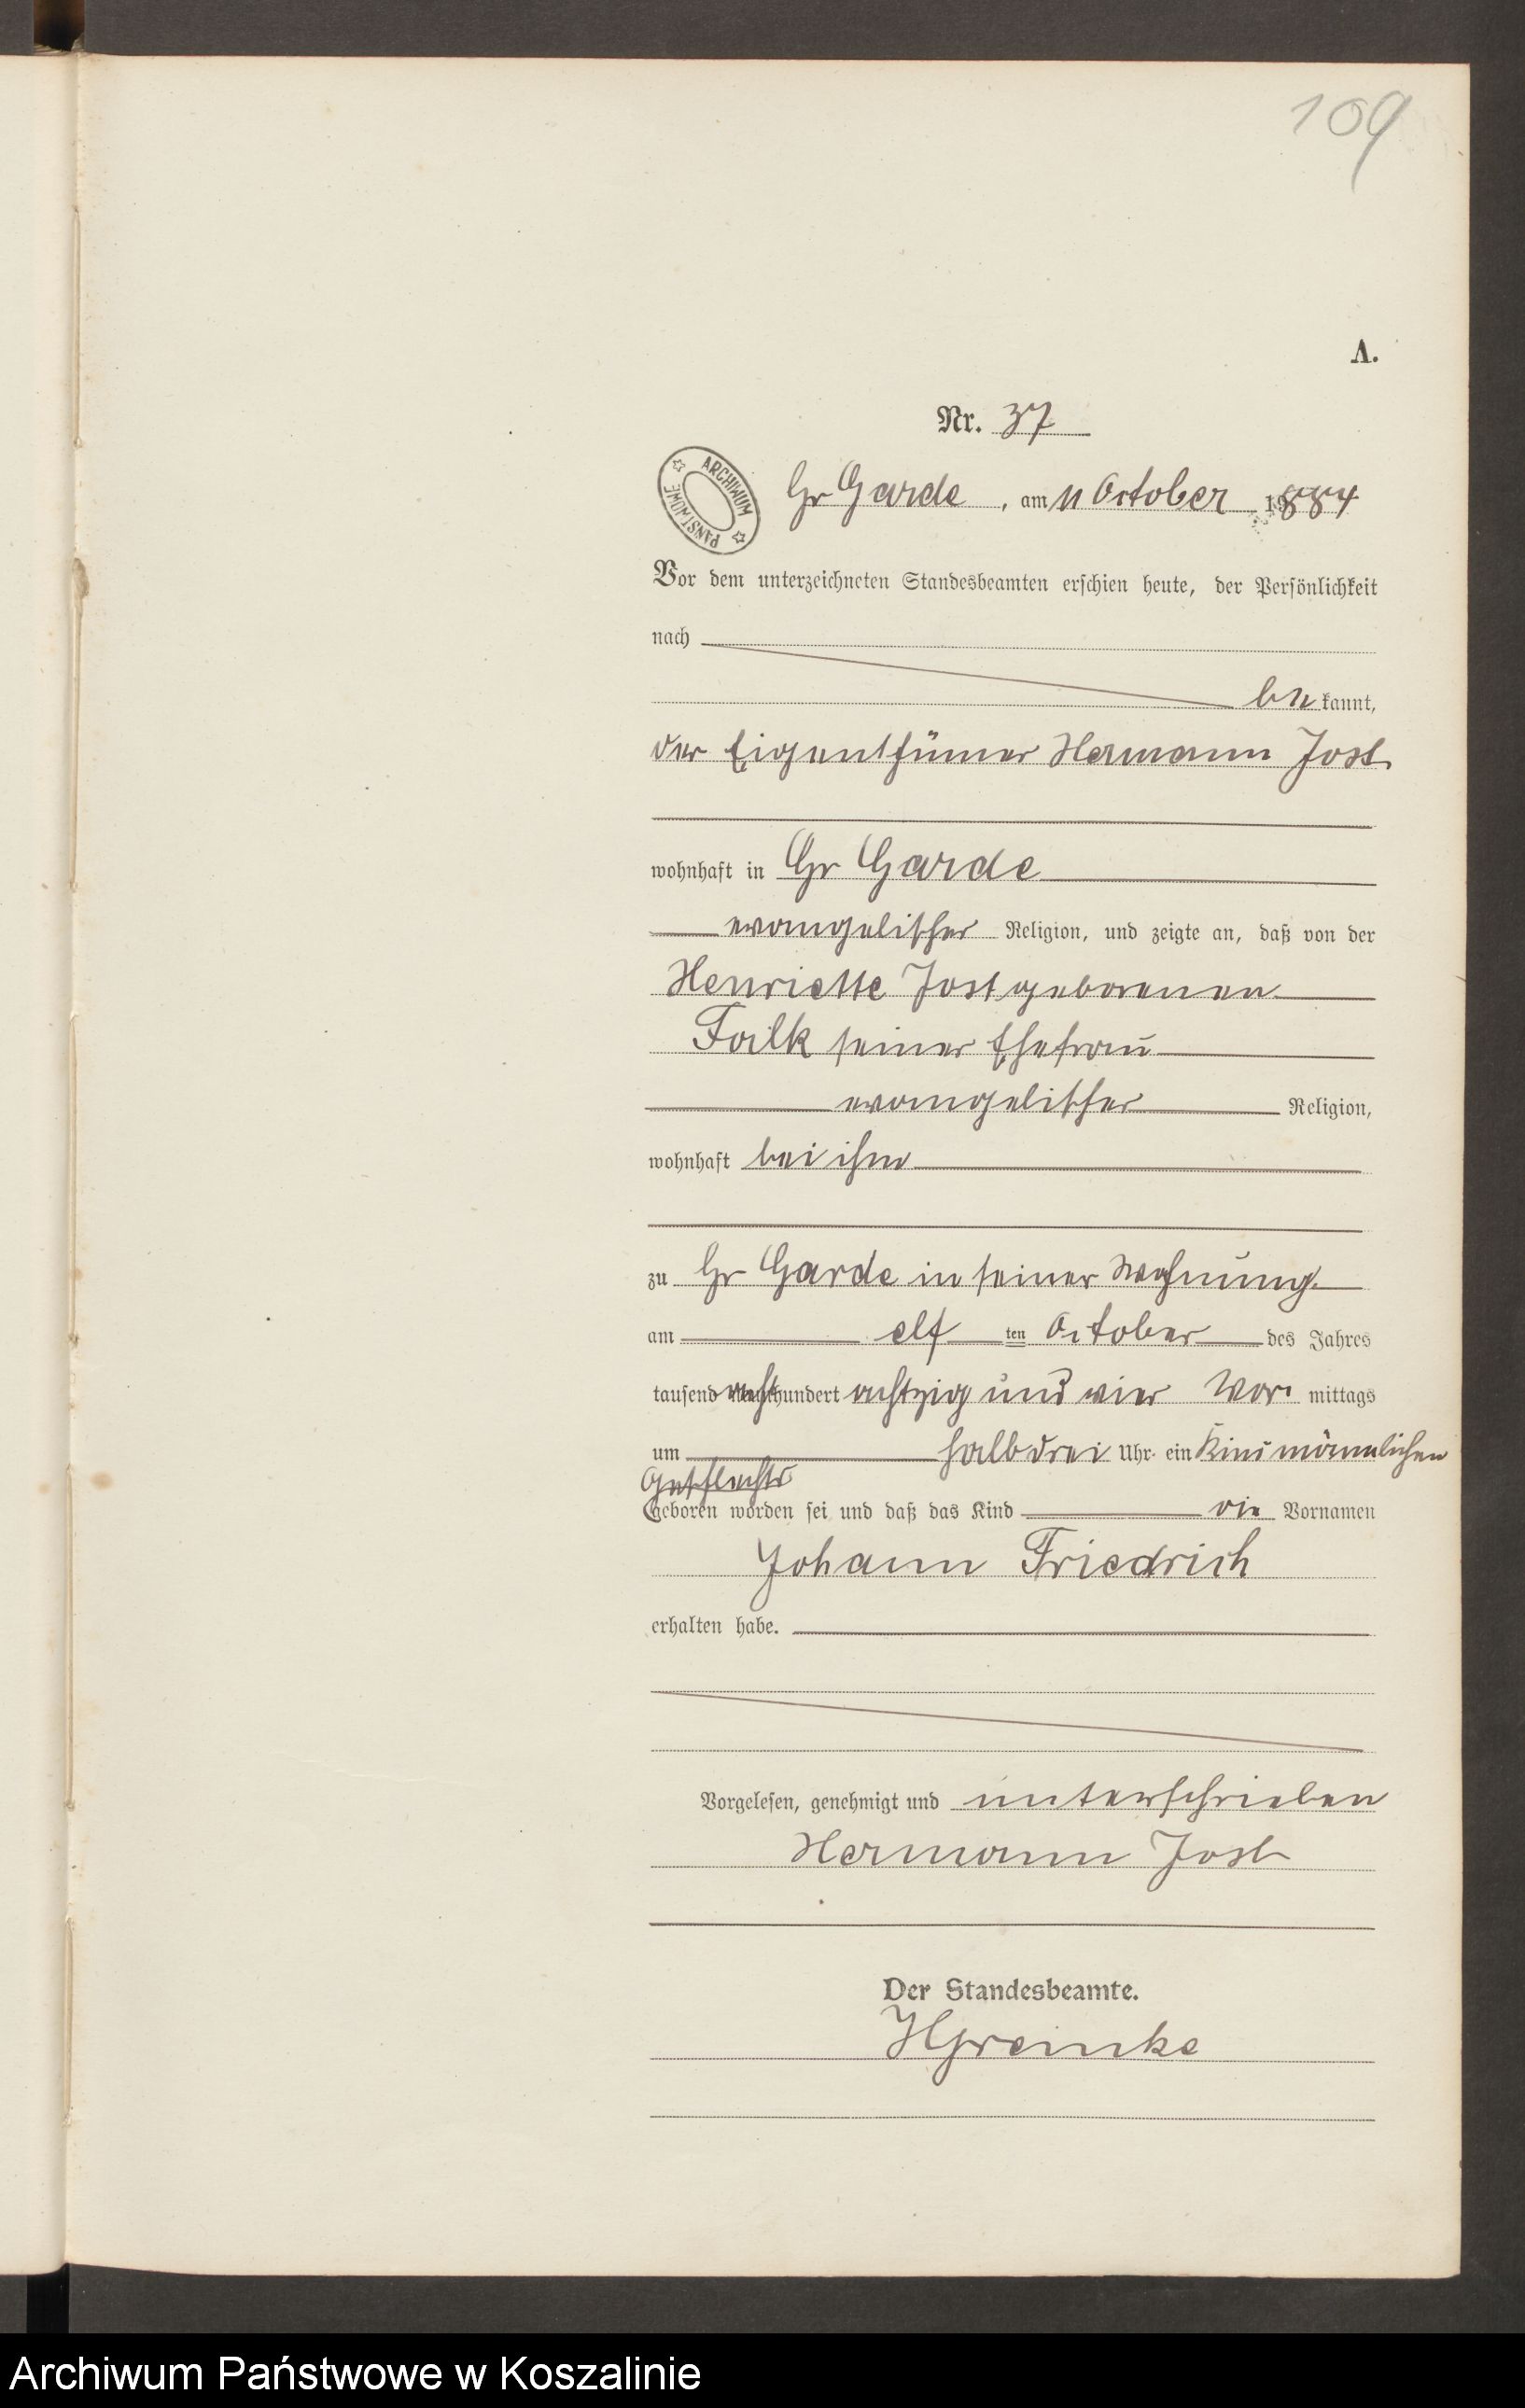 109
A.
Nr. 37
ARCHIWUM PAŃSTWOWE
Gr Garde, am 11 October 1884
Vor dem unterzeichneten Standesbeamten erschien heute, der Persönlichkeit
nach
be kannt,
der Eigenthümer Hermann Jost
wohnhaft in Gr Garde
evangelischer Religion, und zeigte an, daß von der
Henriette Jost geborenen
Falk seiner Ehefrau
evangelischer Religion,
wohnhaft bei ihm
zu Gr Garde in seiner Wohnung
am elf ten October des Jahres
tausend acht hundert achtzig und vier Vor mittags
um halb drei Uhr ein Kind männlichen
Geschlechts
geboren worden sei und daß das Kind die Vornamen
Johann Friedrich
erhalten habe.
Vorgelesen, genehmigt und unterschrieben
Hermann Jost
Der Standesbeamte.
HGreinke
Archiwum Państwowe w Koszalinie